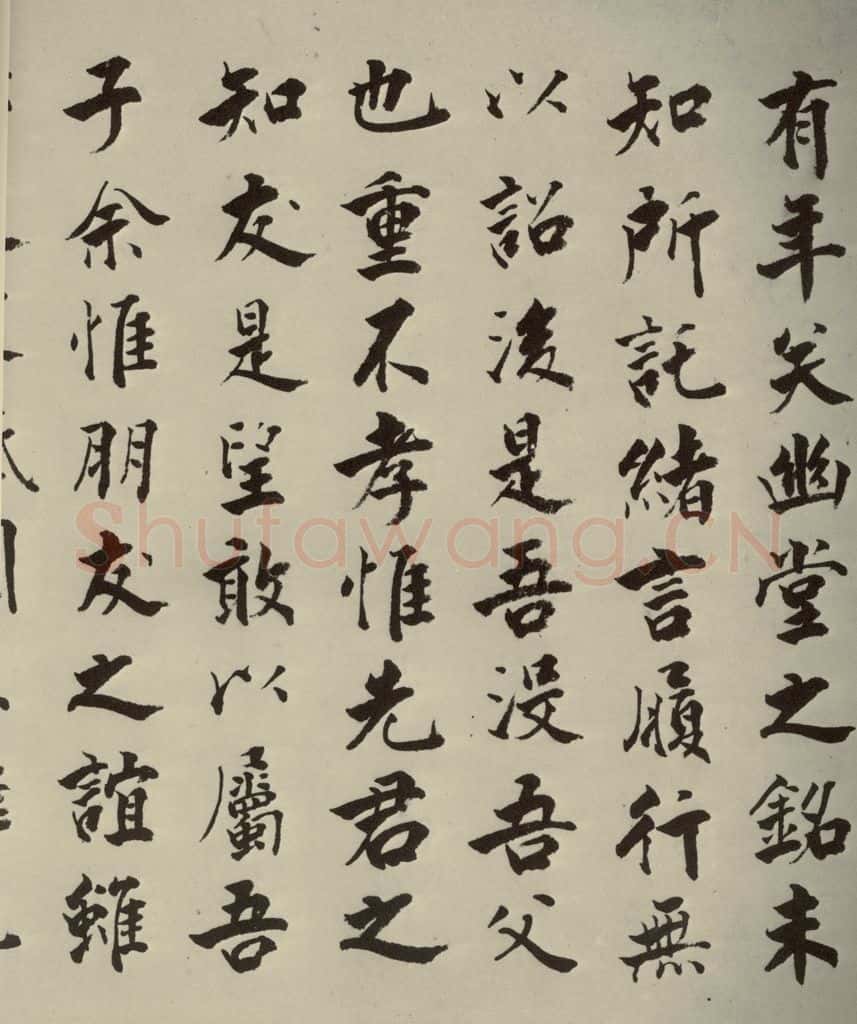 有年矣幽堂之銘未
知所託緒言履行無
以詔後是吾沒吾父
也重不孝惟先君之
知友是望敢以屬吾
子余惟朋友之誼雖
Shufawang.CN